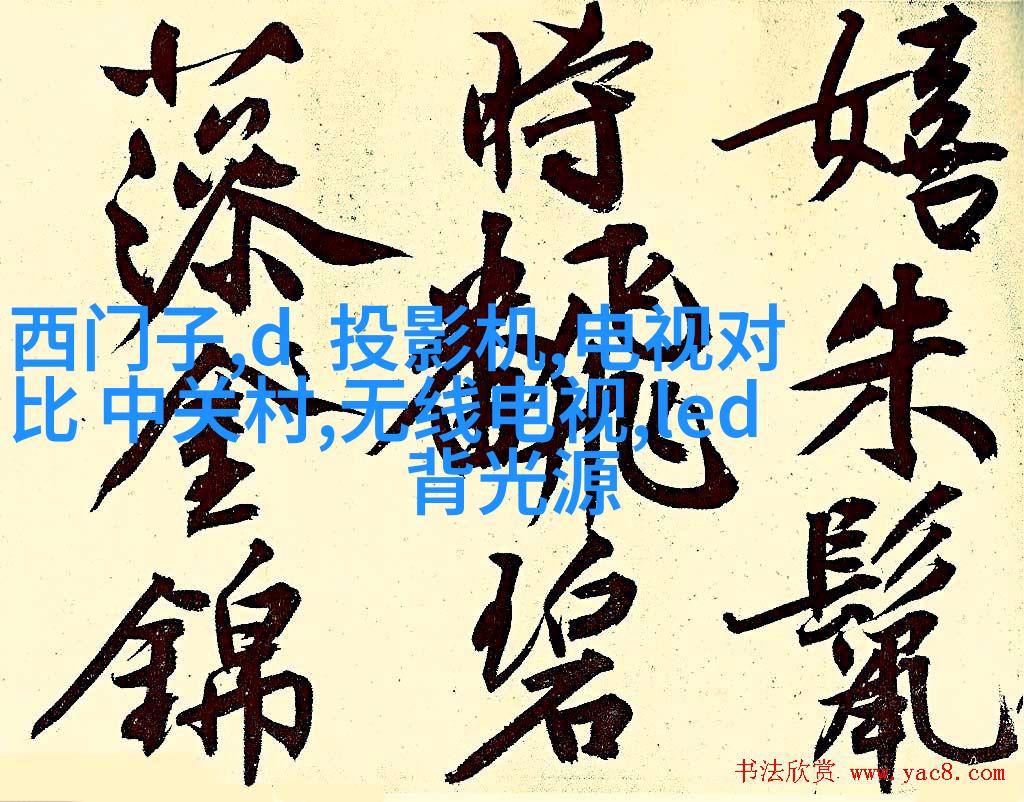 嬉朱鬣
時飜碧
藻金錦
西门子,d 投影机,电视对
比 中关村,无线电视,led
背光源
书法欣赏 www.yac8.com